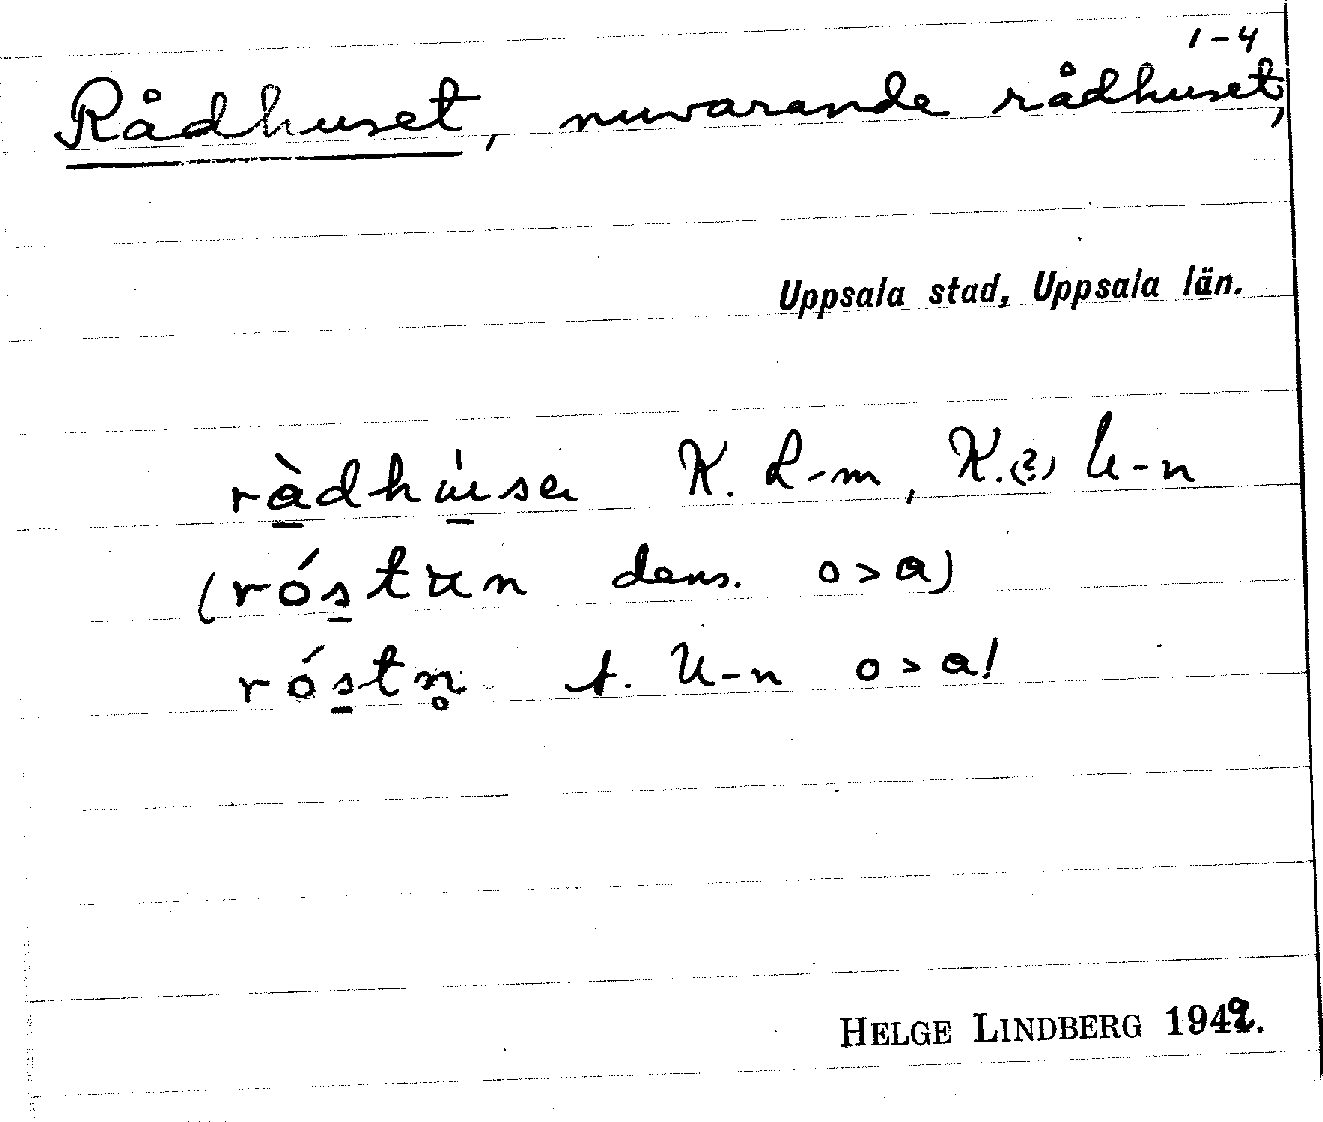 1-4
Rådhuset, nuvarande rådhuset,
Uppsala stad, Uppsala län.
ràdhúsɘ K. L-m, K.(?) U-n
(róstun dens. o>a)
róstn̥ t. U-n o>a!
HELGE LINDBERG 1942.